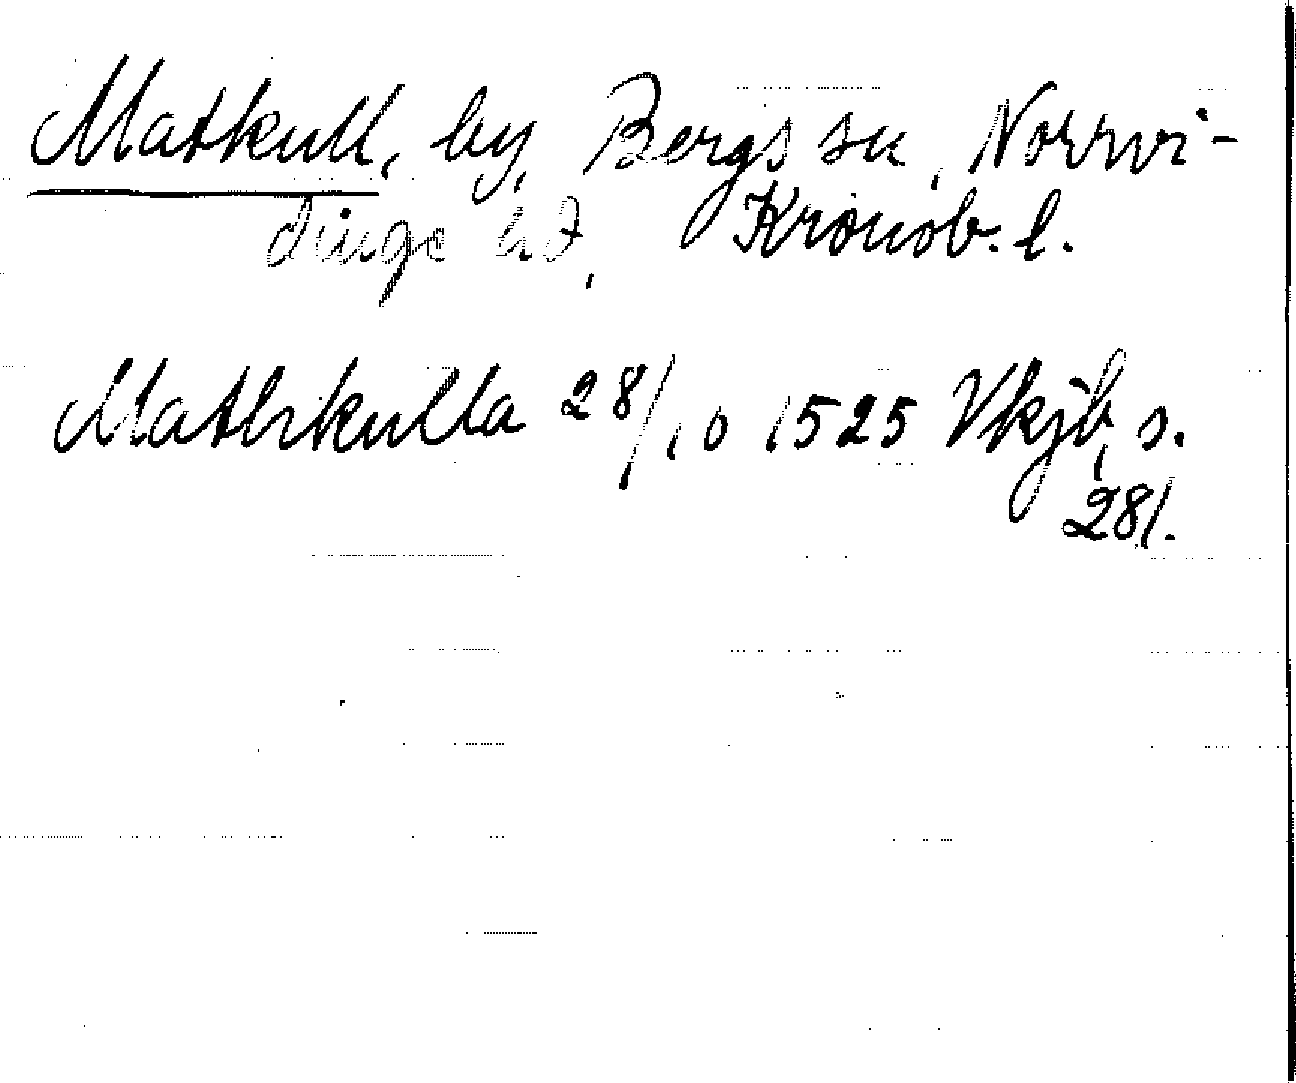 Matkull, by, Bergs sn, Norrvi-
dinge hd, Kronob. l.
Mathkulla 28/10 1525 Vkjb, s.
281.